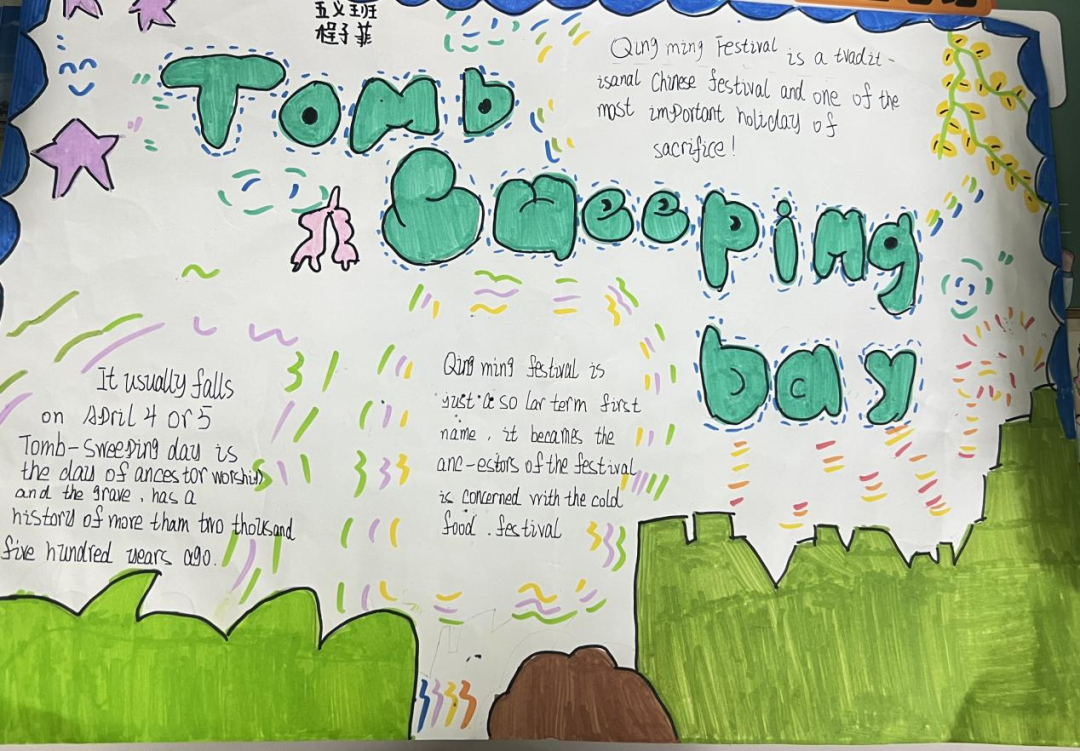 五义班
程子菲
Tomb
Sweeping
day
Qing ming Festival is a tradit-
isanal Chinese festival and one of the
most important holiday of
sacrifice!
It usually falls
on April 4 or 5
Tomb-Sweeping day is
the day of ancestor worship
and the grave, has a
history of more tham two thousand
five hundred years ago.
Qing ming festival is
just a so lar term first
name, it becames the
anc-estors of the festival
is concerned with the cold
food. festival